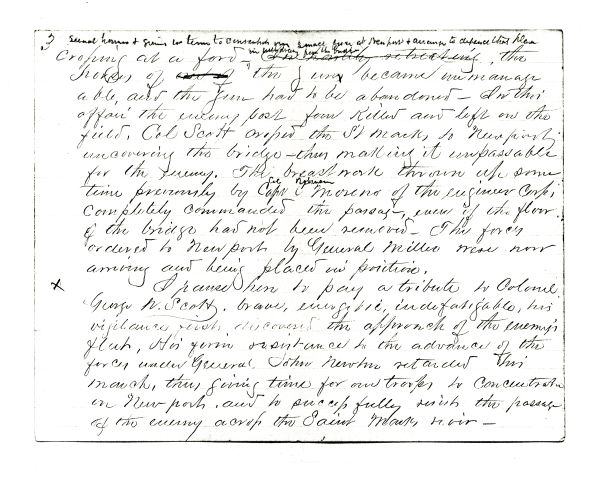 3
several horses & giving us time to concentrate our small force at Newport & arrange to defence that place
in withdrawing from the bridge
Crossing at a ford – In hastily retreating, the
horses of one of the guns became unmanage
able, and the gun had to be abandoned – In this
affair the enemy lost four killed and left on the
field, Col Scott crossed the St Marks to Newport,
uncovering the bridge – thus making it impassable
for the enemy. The breastwork thrown up some
time previously by Capt C Moreno of the engineer Corps
completely commanded the passage, even if the floor
of the bridge had not been removed – The forces
ordered to Newport by General Miller were now
arriving and being placed in position.
x I pause here to pay a tribute to Colonel
George W. Scott, brave, energetic, indefatigable, his
vigilance first discovered the approach of the enemy's
fleet, His firm resistance to the advance of the
forces under General John Newton retarded this
march, thus giving time for our troops to concentrate
in Newport, and to successfully resist the passage
of the enemy across the Saint Marks river –